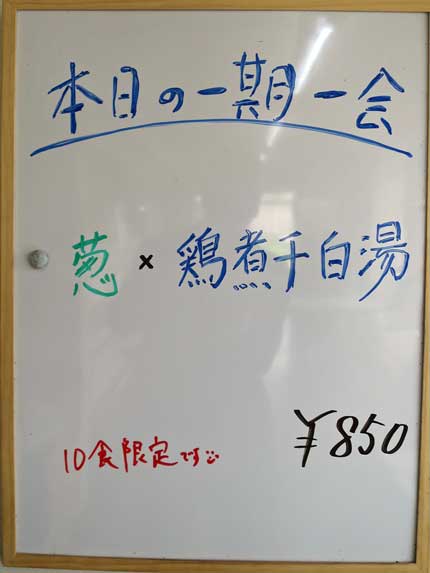 本日の一期一会
葱×鶏煮干白湯
¥850
10食限定です